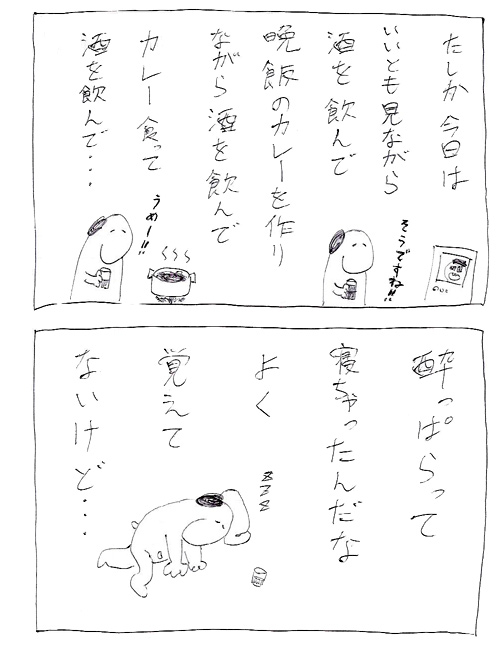 たしか今日は
いいとも見ながら
酒を飲んで
晩飯のカレーを作り
ながら酒を飲んで
カレー食って
酒を飲んで・・・
そうですね!!
うめー!!
酔っぱらって
寝ちゃったんだな
よく
覚えて
ないけど・・・
zzz